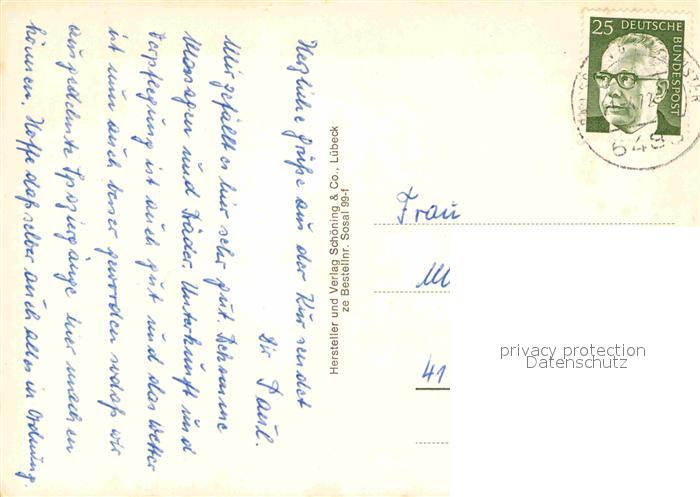 Herzliche Grüße aus der Kur sendet
Dir Paul.
Mir gefällt es hier sehr gut. Bekomme
Massagen und Bäder. Unterkunft und
Verpflegung ist auch gut und das Wetter
ist nun auch besser geworden sodaß wir
ausgedehnte Spaziergänge hier machen
können. Hoffe daß selber auch alles in Ordnung.
Hersteller und Verlag Schöning & Co., Lübeck
ze Bestellnr. Sosal 99-f
25 DEUTSCHE
BUNDESPOST
Frau
41
privacy protection
Datenschutz